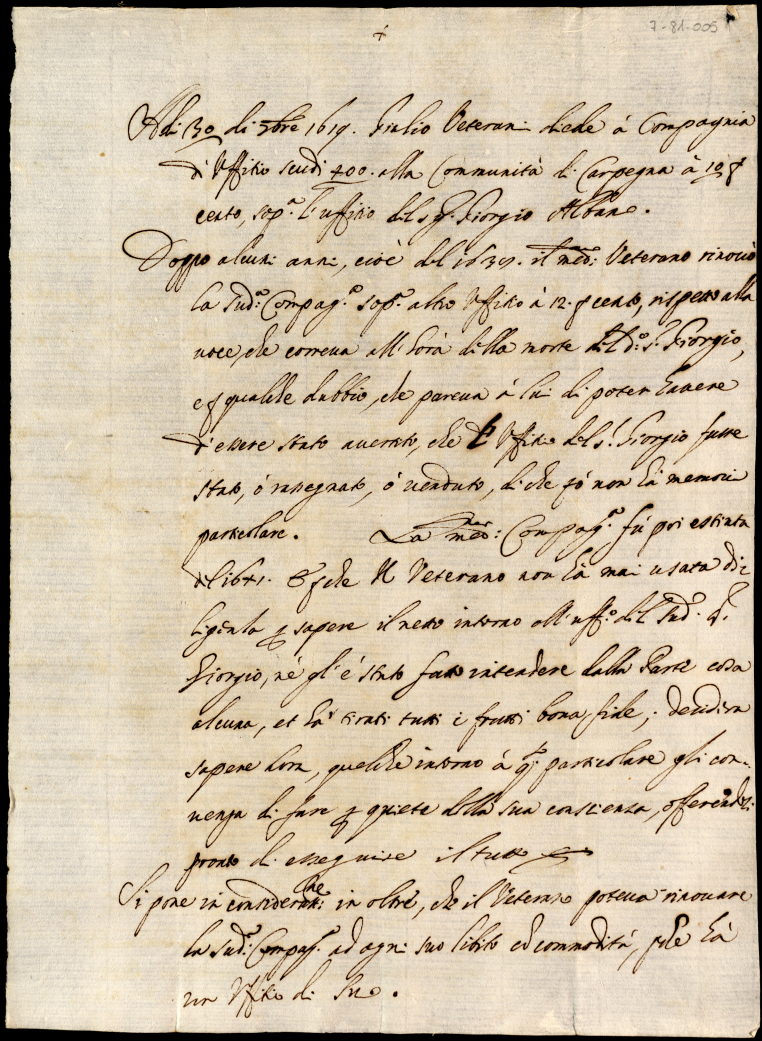 7-81-005
+
Adi 30 di 9bre 1619. Giulio Veterani diede à Compagnia
d'Uffitio scudi 400. alla Communità di Carpegna à 10 p
cento, sop.a l'uffitio del s.r Giorgio Albano.
Doppo alcuni anni, cioè del 1639. il med.o Veterano rinovò
la sud.a Compag.a sop.a altro Uffitio à 12. p cento, rispetto alla
voce, che correva all'hora della morte del d.o s.r Giorgio,
e p qualche dubbio, che pareva à lui di poter havere
d'essere stato avertito, che l'Uffitio del s.r Giorgio fusse
stato, ò rassegnato, ò venduto, di che però non hà memoria
particolare. La med.a Compag.a fù poi estinta
del 1641. E p che il Veterano non hà mai usata dili-
genza p sapere il netto intorno all'uff.o del sud.o s.r
Giorgio, nè gl'è stato fatto intendere dalla Parte cosa
alcuna, et hà tirati tutti i frutti bona fide; desidera
sapere hora, quelche intorno à q.o particolare gli con-
venga di fare p quiete della sua conscienza, offerendosi
pronto di esseguire il tutto
Si pone in consideratne in oltre, che il Veterano poteva rinovare
la sud.a Compag.a ad ogni suo libito et commodità, p che hà
un Uffitio di suo.